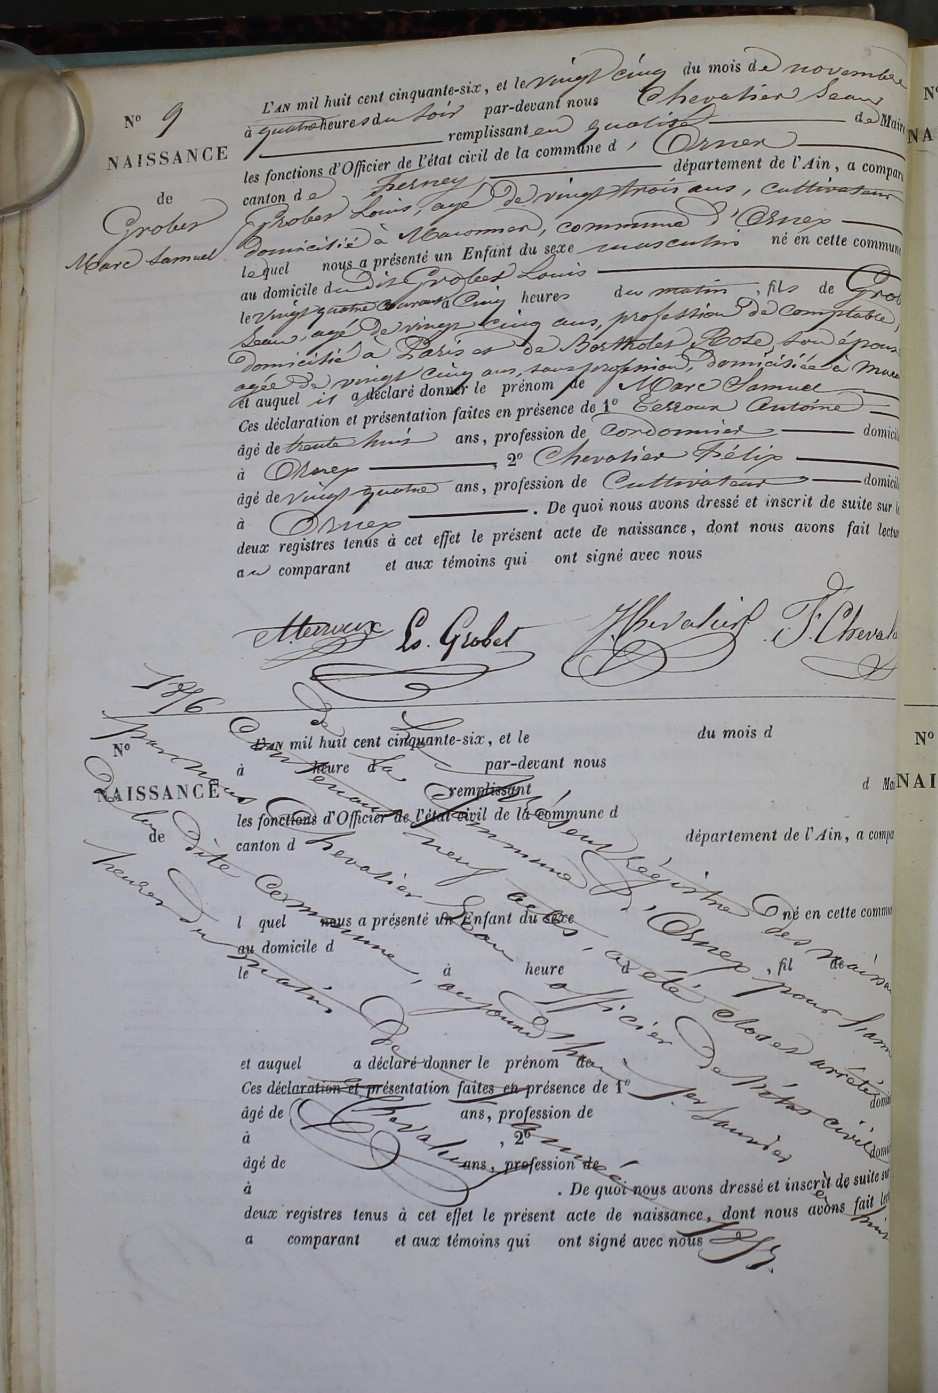 N° 9
NAISSANCE
de
Grobet
Marc Samuel
L'AN mil huit cent cinquante-six, et le vingt cinq du mois de novembre
à quatre heures du soir par-devant nous Chevalier Jean
remplissant en qualité de Maire
les fonctions d'Officier de l'état civil de la commune d'Ornex
canton de Ferney, département de l'Ain, a compar
Grobet Louis, agé de vingt trois ans, cultivateur
domicilié à Maconnex, commune d'Ornex
lequel nous a présenté un Enfant du sexe masculin né en cette commune
au domicile du dit Grobet Louis
le vingt quatre courant à cinq heures du matin, fils de Grob
Jean, agé de vingt cinq ans, profession de comptable,
domicilié à Paris et de Bertholet Rose, son épouse
agée de vingt cinq ans, sans profession, domiciliée à Maco
et auquel il a déclaré donner le prénom de Marc Samuel
Ces déclaration et présentation faites en présence de 1° Terroux Antoine
âgé de trente huit ans, profession de Cordonnier domicil
à Ornex, 2° Chevalier Félix
âgé de vingt quatre ans, profession de Cultivateur domicil
à Ornex. De quoi nous avons dressé et inscrit de suite sur l
deux registres tenus à cet effet le présent acte de naissance, dont nous avons fait lectur
au comparant et aux témoins qui ont signé avec nous
Aterroux Ls. Grobet J. Chevalier F. Cheval
N°
NAISSANCE
de
L'AN mil huit cent cinquante-six, et le du mois d
à heure d par-devant nous
remplissant d Mai
les fonctions d'Officier de l'état civil de la commune d
canton d département de l'Ain, a compa
l quel nous a présenté un Enfant du sexe né en cette commu
au domicile d
le à heure d, fil de
et auquel a déclaré donner le prénom de
Ces déclaration et présentation faites en présence de 1°
âgé de ans, profession de domi
à, 2°
âgé de ans, profession de domi
à. De quoi nous avons dressé et inscrit de suite sur
deux registres tenus à cet effet le présent acte de naissance, dont nous avons fait lec
a comparant et aux témoins qui ont signé avec nous
Le présent Régistre des naissan
de la Commune d'Ornex pour l'ann
1856
contenant neuf actes, a été clos et arrêté
par nous Chevalier Jean officier de l'état civil
de la dite commune, aujourd'hui 1er Janvier à huit
heures du matin de l'année 1857.
Chevalier
N°
NA
N°
NAI